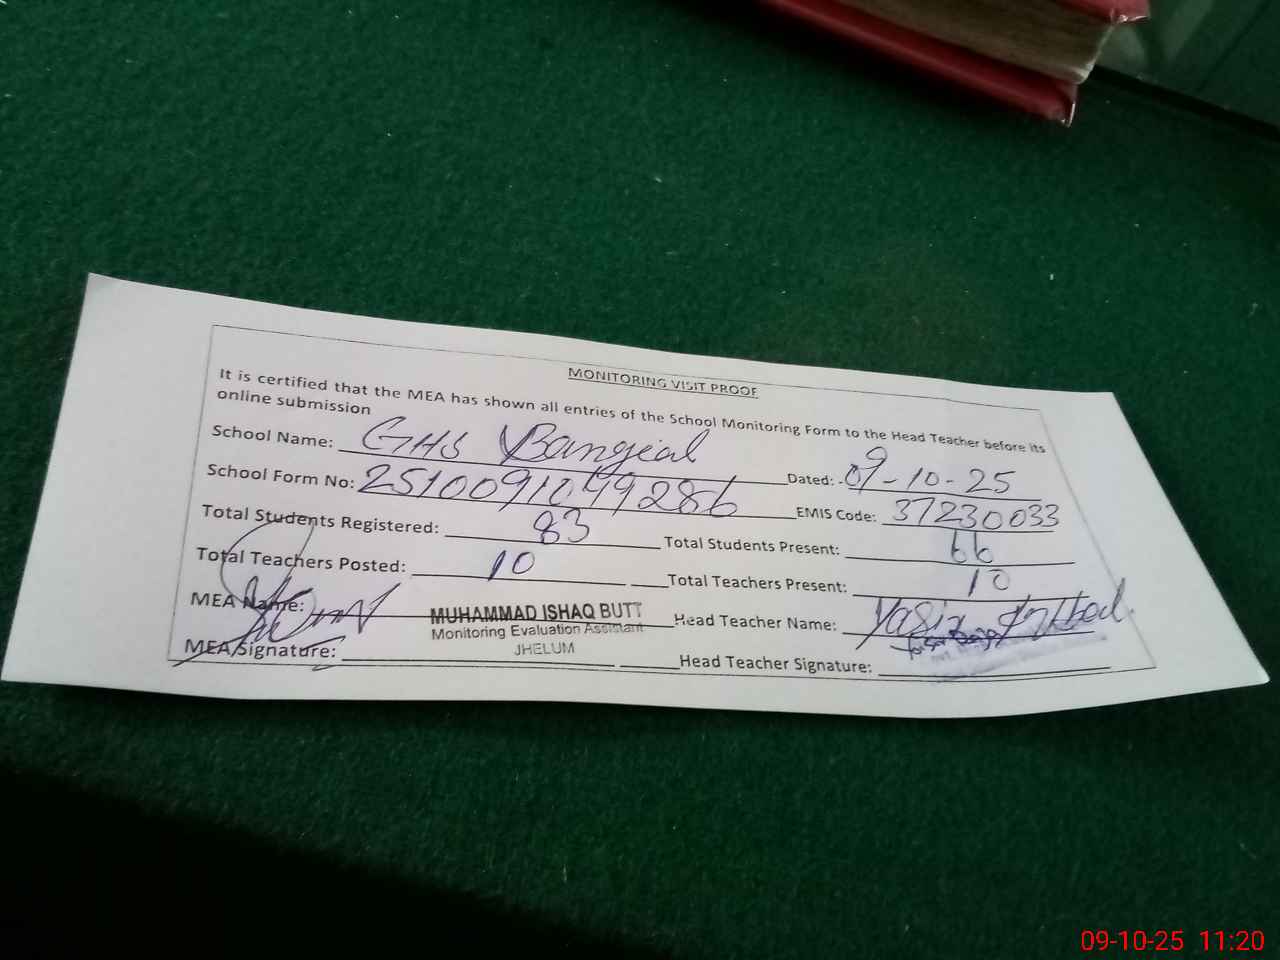 MONITORING VISIT PROOF
It is certified that the MEA has shown all entries of the School Monitoring Form to the Head Teacher before its
online submission
School Name: GHS Bangial Dated: 09-10-25
School Form No: 2510091049286 EMIS Code: 37230033
Total Students Registered: 83 Total Students Present: 66
Total Teachers Posted: 10 Total Teachers Present: 10
MEA Name: MUHAMMAD ISHAQ BUTT Head Teacher Name: Yasir
Monitoring Evaluation Assistant
MEA Signature: JHELUM Head Teacher Signature:
09-10-25 11:20